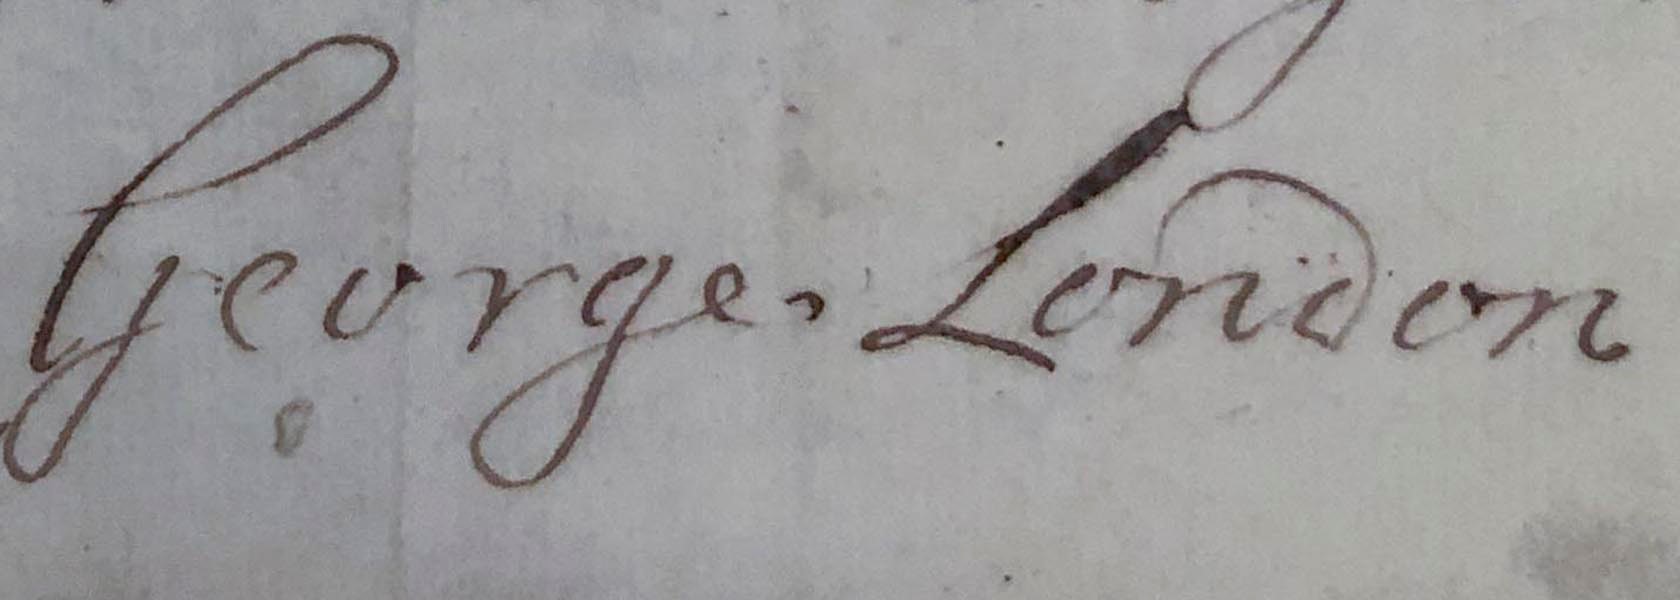 George. London